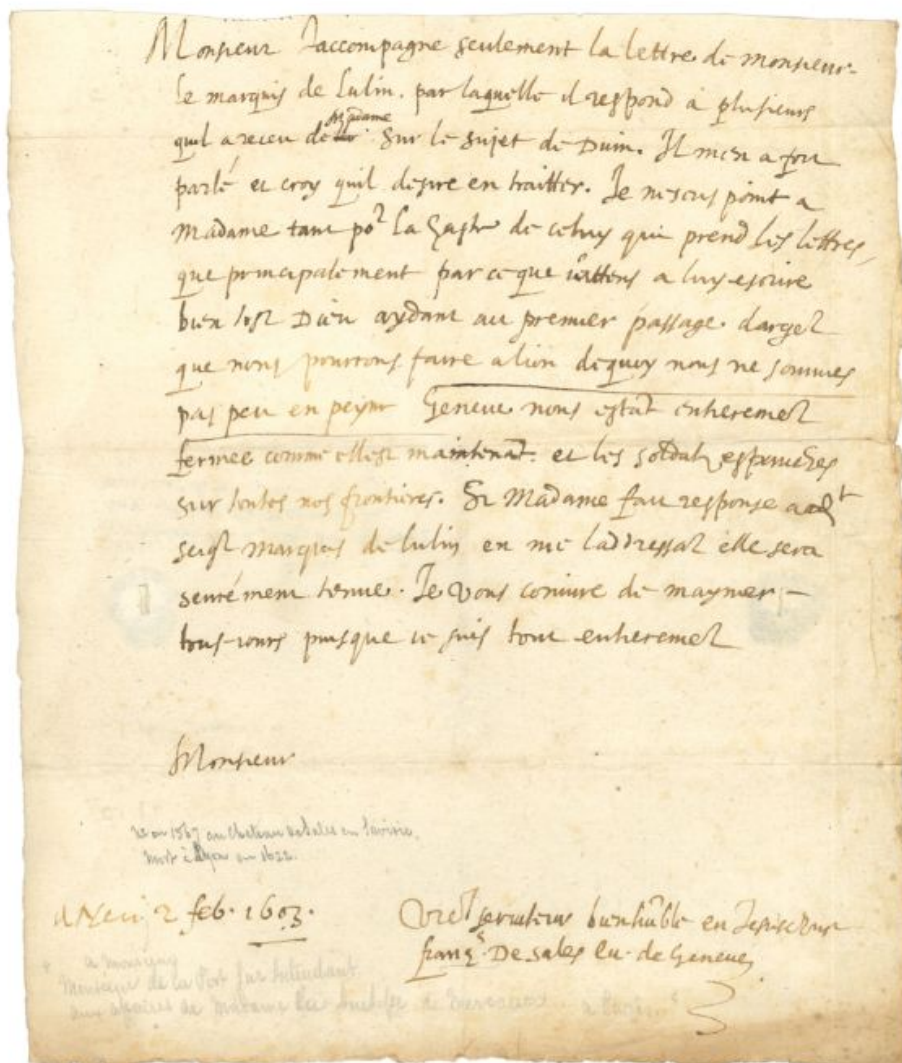 Monsieur Jaccompagne seulement la lettre de monsieur
le marquis de Lulin. par laquelle il respond a plusieurs
quil a receu de Madame sur le sujet de Duin. Il men a fort
parlé et croy quil desire en traitter. Je nescris point a
Madame tant po.r la haste de celuy qui prend les lettres,
que principalement par ce que iattens a luy escrire
bien tost Dieu aydant au premier passage dargēt
que nous pourrons faire a lion dequoy nous ne sommes
pas peu en peyne Geneve nous estāt entieremēt
fermee comme ellest maintenāt. et les soldatz espanchez
sur toutes nos frontieres. Si Madame fait response
seigr Marquis de lulin en me laddressāt elle sera
seurément tenue. Je vous coniure de maymer
tous-iours puisque ie suis tout entieremēt
Monsieur
né en 1567 au chateau de Sales en Savoie,
mort à Lyon en 1622.
2 feb. 1603.
serviteur bien hūble en
franç.s De Sales Ev. de Geneve
Monsieur de la
aux affaires de Madame